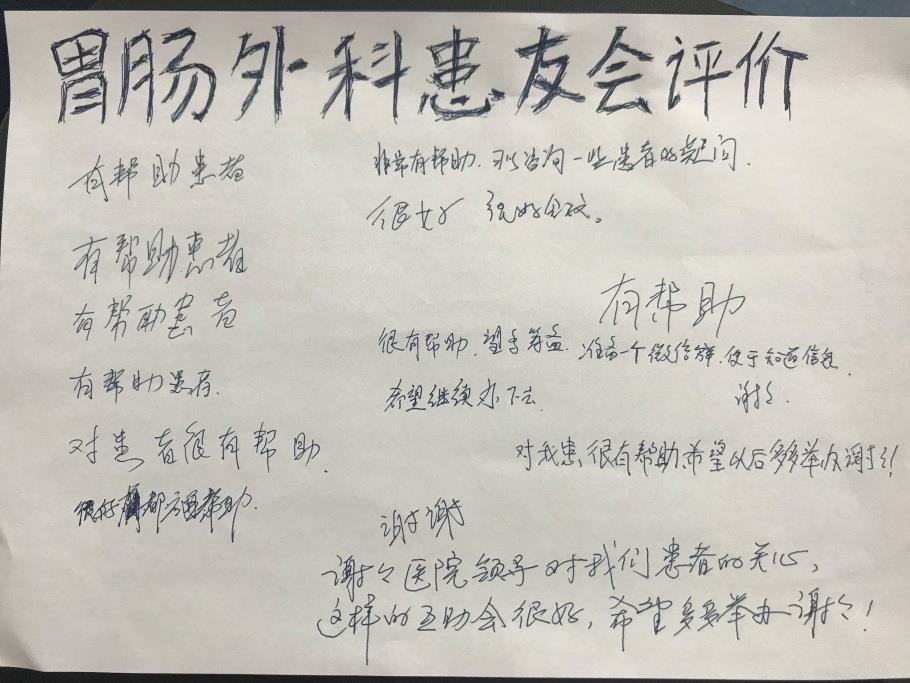 胃肠外科患友会评价
有帮助患者
有帮助患者
有帮助患者
有帮助患者
对患者很有帮助
很好 都方面帮助
非常有帮助.可以咨询一些患者的疑问.
很好
有帮助
很有帮助.
准备一个微信群.便于知道信息.
希望继续办下去
谢谢.
对我患很有帮助.希望以后多多举办谢谢!!
谢谢
谢谢医院领导对我们患者的关心,
这样的互助会很好,希望多多举办谢谢!